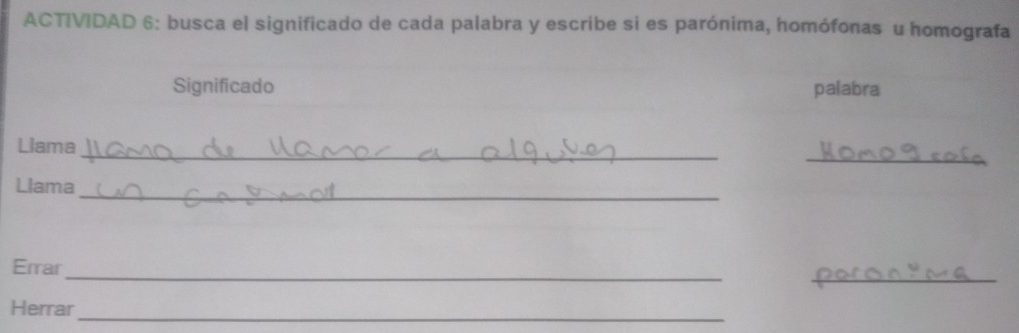 ACTIVIDAD 6: busca el significado de cada palabra y escribe si es parónima, homófonas u homografa
Significado palabra
Llama llama de llamar a alguien Homografa
Llama un animal
Errar paronima
Herrar